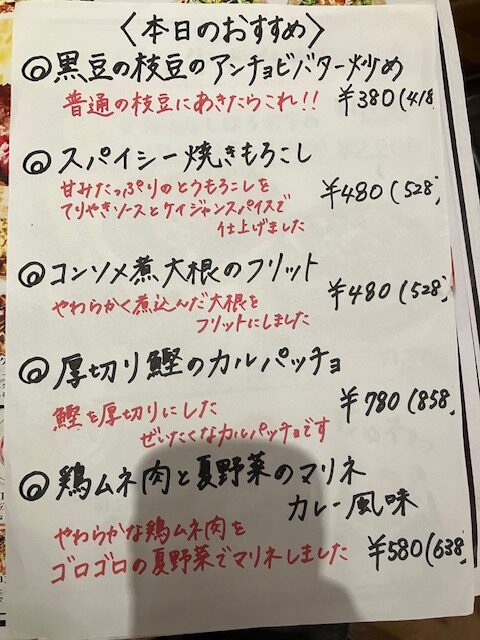 〈本日のおすすめ〉
◎黒豆の枝豆のアンチョビバター炒め
普通の枝豆にあきたらこれ!! ¥380(418
◎スパイシー焼きもろこし
甘みたっぷりのとうもろこしを ¥480(528)
てりやきソースとケイジャンスパイスで
仕上げました
◎コンソメ煮大根のフリット
やわらかく煮込んだ大根を ¥480(528)
フリットにしました
◎厚切り鰹のカルパッチョ
¥780(858)
鰹を厚切りにした
ぜいたくなカルパッチョです
◎鶏ムネ肉と夏野菜のマリネ
カレー風味
やわらかな鶏ムネ肉を
ゴロゴロの夏野菜でマリネしました ¥580(638)